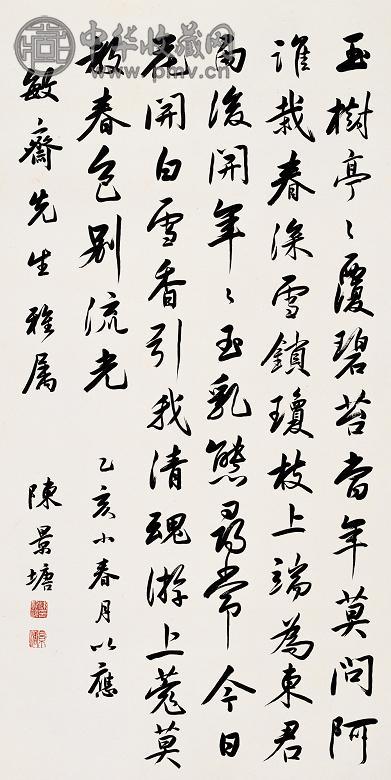 中华收藏网
www.pmv.cn
玉樹亭〻覆碧苔當年莫問阿
誰栽春深雪鎖瓊枝上端為東君
後開年〻玉乳態尋常今日
花開白雪香引我清魂游上苑莫
教春色別流光
乙亥小春月以應
敏齋先生雅属
陳景塘